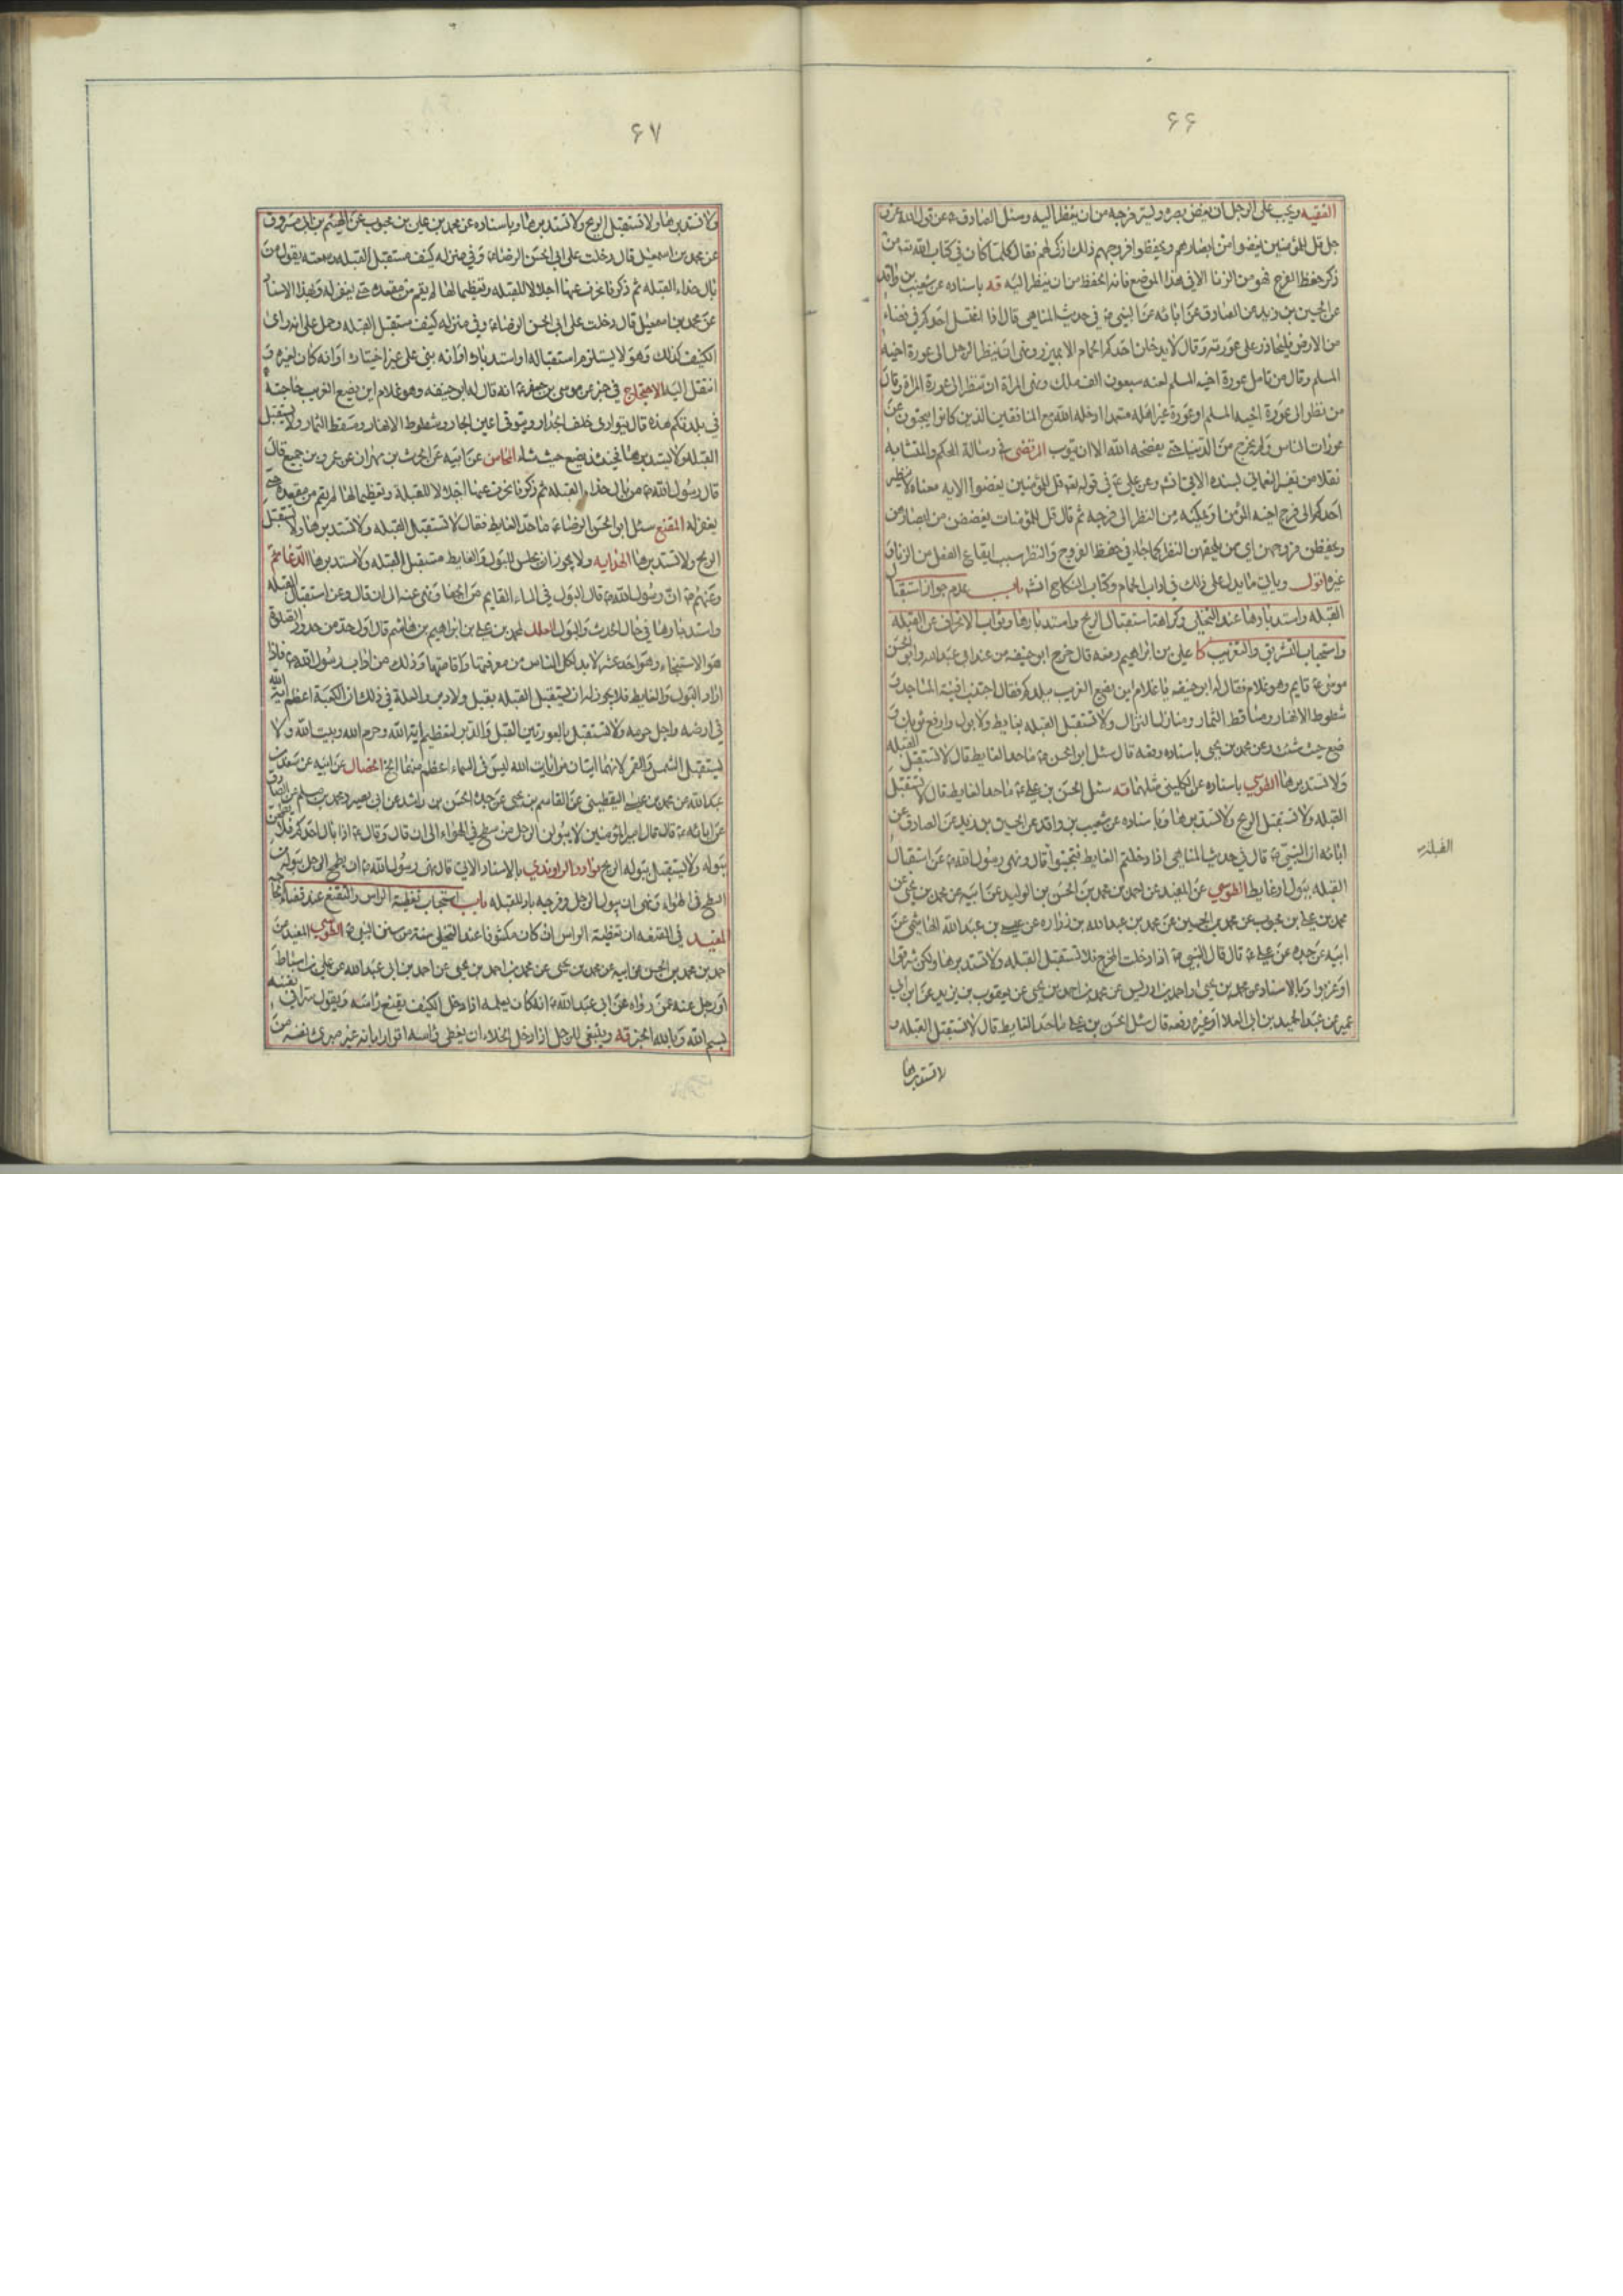 ۶۶
الفقيه ويجب على الرجل ان يغض بصره وليستر فرجه من ان ينظر اليه وسئل الصادق ع عن قول الله عز و
جل قل للمؤمنين يغضوا من ابصارهم ويحفظوا فروجهم ذلك ازكى لهم فقال كلما كان في كتاب الله تع من
ذكر حفظ الفرج فهو من الزنا الا في هذا الموضع فانه الحفظ من ان ينظر اليه قه باسناده عن شعيب بن واقد
عن الحسين بن زيد عن الصادق عن ابائه عن النبي ص في حديث المناهي قال اذا اغتسل احدكم في فضاء
من الارض فليحاذر على عورته وقال لا يدخلن احدكم الحمام الا بميزر ونهى ان ينظر الرجل الى عورة اخيه
المسلم وقال من تامل عورة اخيه المسلم لعنه سبعون الف ملك ونهى المراة ان تنظر الى عورة المراة وقال
من نظر الى عورة اخيه المسلم او عورة غير اهله متعمدا ادخله الله مع المنافقين الذين كانوا يبحثون عن
عورات الناس ولم يخرج من الدنيا حتى يفضحه الله الا ان يتوب المرتضى في رسالة المحكم والمتشابه
نقلا من تفسير النعماني بسنده الاتي عن علي ع في قوله تع قل للمؤمنين يغضوا الايه معناه لا ينظر
احدكم الى فرج اخيه المؤمن او يمكنه من النظر الى فرجه ثم قال قل للمؤمنات يغضضن من ابصارهن
ويحفظن فروجهن اي ممن يلحقهن النظر كما جاء في حفظ الفروج والنظر سبب ايقاع الفعل من الزنا و
غيره اقول وياتي ما يدل على ذلك في اداب الحمام وكتاب النكاح انش باب عدم جواز استقبال
القبله واستدبارها عند التخلي وكراهة استقبال الريح واستدبارها وثواب الانحراف عن القبله
واستحباب التشريق والتغريب كا علي بن ابراهيم رفعه قال خرج ابو حنيفه من عند ابي عبد الله وابو الحسن
موسى ع قايم وهو غلام فقال له ابو حنيفه يا غلام اين يضع الغريب ببلدكم فقال اجتنب افنية المساجد و
شطوط الانهار ومساقط الثمار ومنازل النزال ولا تستقبل القبله بغايط ولا بول وارفع ثوبك و
ضع حيث شئت وعن محمد بن يحيى باسناده رفعه قال سئل ابو الحسن ع ما حد الغايط قال لا تستقبل القبله
ولا تستدبرها الطوسي باسناده عن الكليني مثلهما قه سئل الحسن بن علي ع ما حد الغايط قال لا تستقبل
القبله ولا تستقبل الريح ولا تستدبرها وباسناده عن شعيب بن واقد عن الحسين بن زيد عن الصادق عن
ابائه ان النبي ص قال في حديث المناهي اذا دخلتم الغايط فتجنبوا قال ونهى رسول الله ص عن استقبال
القبله ببول او غايط الطوسي عن المفيد عن احمد بن محمد بن الحسن بن الوليد عن ابيه عن محمد بن يحيى عن
محمد بن علي بن محبوب عن محمد بن الحسين عن محمد بن عبد الله بن زراره عن عيسى بن عبد الله الهاشمي عن
ابيه عن جده عن علي ع قال قال النبي ص اذا دخلت المخرج فلا تستقبل القبله ولا تستدبرها ولكن شرقوا
او غربوا وبالاسناد عن محمد بن يحيى واحمد بن ادريس عن محمد بن احمد بن يحيى عن يعقوب بن يزيد عن ابن ابي
عمير عن عبد الحميد بن ابي العلا او غيره رفعه قال سئل الحسن بن علي ع ما حد الغايط قال لا تستقبل القبله و
القبله
۶۷
ولا تستدبرها ولا تستقبل الريح ولا تستدبرها وباسناده عن محمد بن علي بن محبوب عن الهيثم بن ابي مسروق
عن محمد بن اسمعيل قال دخلت على ابي الحسن الرضا ع وفي منزله كنيف مستقبل القبله وسمعته يقول من
بال حذاء القبله ثم ذكر فانحرف عنها اجلالا للقبله وتعظيما لها لم يقم من مقعده حتى يغفر له وبهذا الاسناد
عن محمد بن اسمعيل قال دخلت على ابي الحسن الرضا ع وفي منزله كنيف مستقبل القبله وحمل على انه راى
الكنيف كذلك وهو لا يستلزم استقباله او استدباره او انه بنى على غير اختياره او انه كان لغيره و
انتقل اليه الاحتجاج في خبر عن موسى بن جعفر ع انه قال له ابو حنيفه وهو غلام اين يضع الغريب حاجته
في بلدتكم هذه قال يتوارى خلف الجدار ويتوقى اعين الجار وشطوط الانهار ومسقط الثمار ولا يستقبل
القبله ولا يستدبرها فحينئذ يضع حيث شاء المحاسن عن ابيه عن الحرث بن بهرام عن عمرو بن جميع قال
قال رسول الله ص من بال حذاء القبله ثم ذكر فانحرف عنها اجلالا للقبلة وتعظيما لها لم يقم من مقعده حتى
يغفر له المقنع سئل ابو الحسن الرضا ع ما حد الغايط فقال لا تستقبل القبله ولا تستدبرها ولا تستقبل
الريح ولا تستدبرها الهدايه ولا يجوز ان يجلس للبول والغايط مستقبل القبله ولا مستدبرها الدعائم
وعنهم ع ان رسول الله ص قال البول في الماء القايم من الجفا ونهى عنه الى ان قال وعن استقبال القبله
واستدبارها في حال الحدث والبول العلل لمحمد بن علي بن ابراهيم بن هاشم قال اول حد من حدود الصلوة
هو الاستنجاء وهو احد عشر لا بد لكل الناس من معرفتها واقامتها وذلك من اداب رسول الله ص فاذا
اراد البول والغايط فلا يجوز له ان يستقبل القبله بقبل ولا دبر والعلة في ذلك ان الكعبة اعظم اية الله
في ارضه واجل حرمه ولا تستقبل بالعورتين القبل والدبر لتعظيم اية الله وحرم الله وبيت الله ولا
يستقبل الشمس والقمر لانهما ايتان من ايات الله ليس في السماء اعظم منهما الخ الخصال عن ابيه عن سعد بن
عبد الله عن محمد بن عيسى اليقطيني عن القاسم بن يحيى عن جده الحسن بن راشد عن ابي بصير ومحمد بن مسلم عن الصادق
عن ابائه ع قال قال امير المؤمنين لا يبولن الرجل من سطح في الهواء الى ان قال وقال ع اذا بال احدكم فلا يطمحن
ببوله ولا يستقبل ببوله الريح نوادر الراوندي بالاسناد الاتي قال نهى رسول الله ص ان يطمح الرجل ببوله من
السطح في الهواء ونهى ان يبول الرجل وفرجه باد للقبله باب استحباب تغطية الراس والتقنع عند قضاء الحاجة
المفيد في المقنعه ان تغطية الراس ان كان مكشوفا عند التخلي سنة من سنن النبي ص الطوسي المفيد عن
احمد بن محمد بن الحسن عن ابيه عن محمد بن يحيى عن محمد بن احمد بن يحيى عن احمد بن ابي عبد الله عن علي بن اسباط
او رجل عنه عمن رواه عن ابي عبد الله ع انه كان يعمله اذا دخل الكنيف يقنع راسه ويقول سرا في نفسه
بسم الله وبالله الخبر قه وينبغي للرجل اذا دخل الخلاء ان يغطي راسه اقرارا بانه غير مبرئ نفسه من